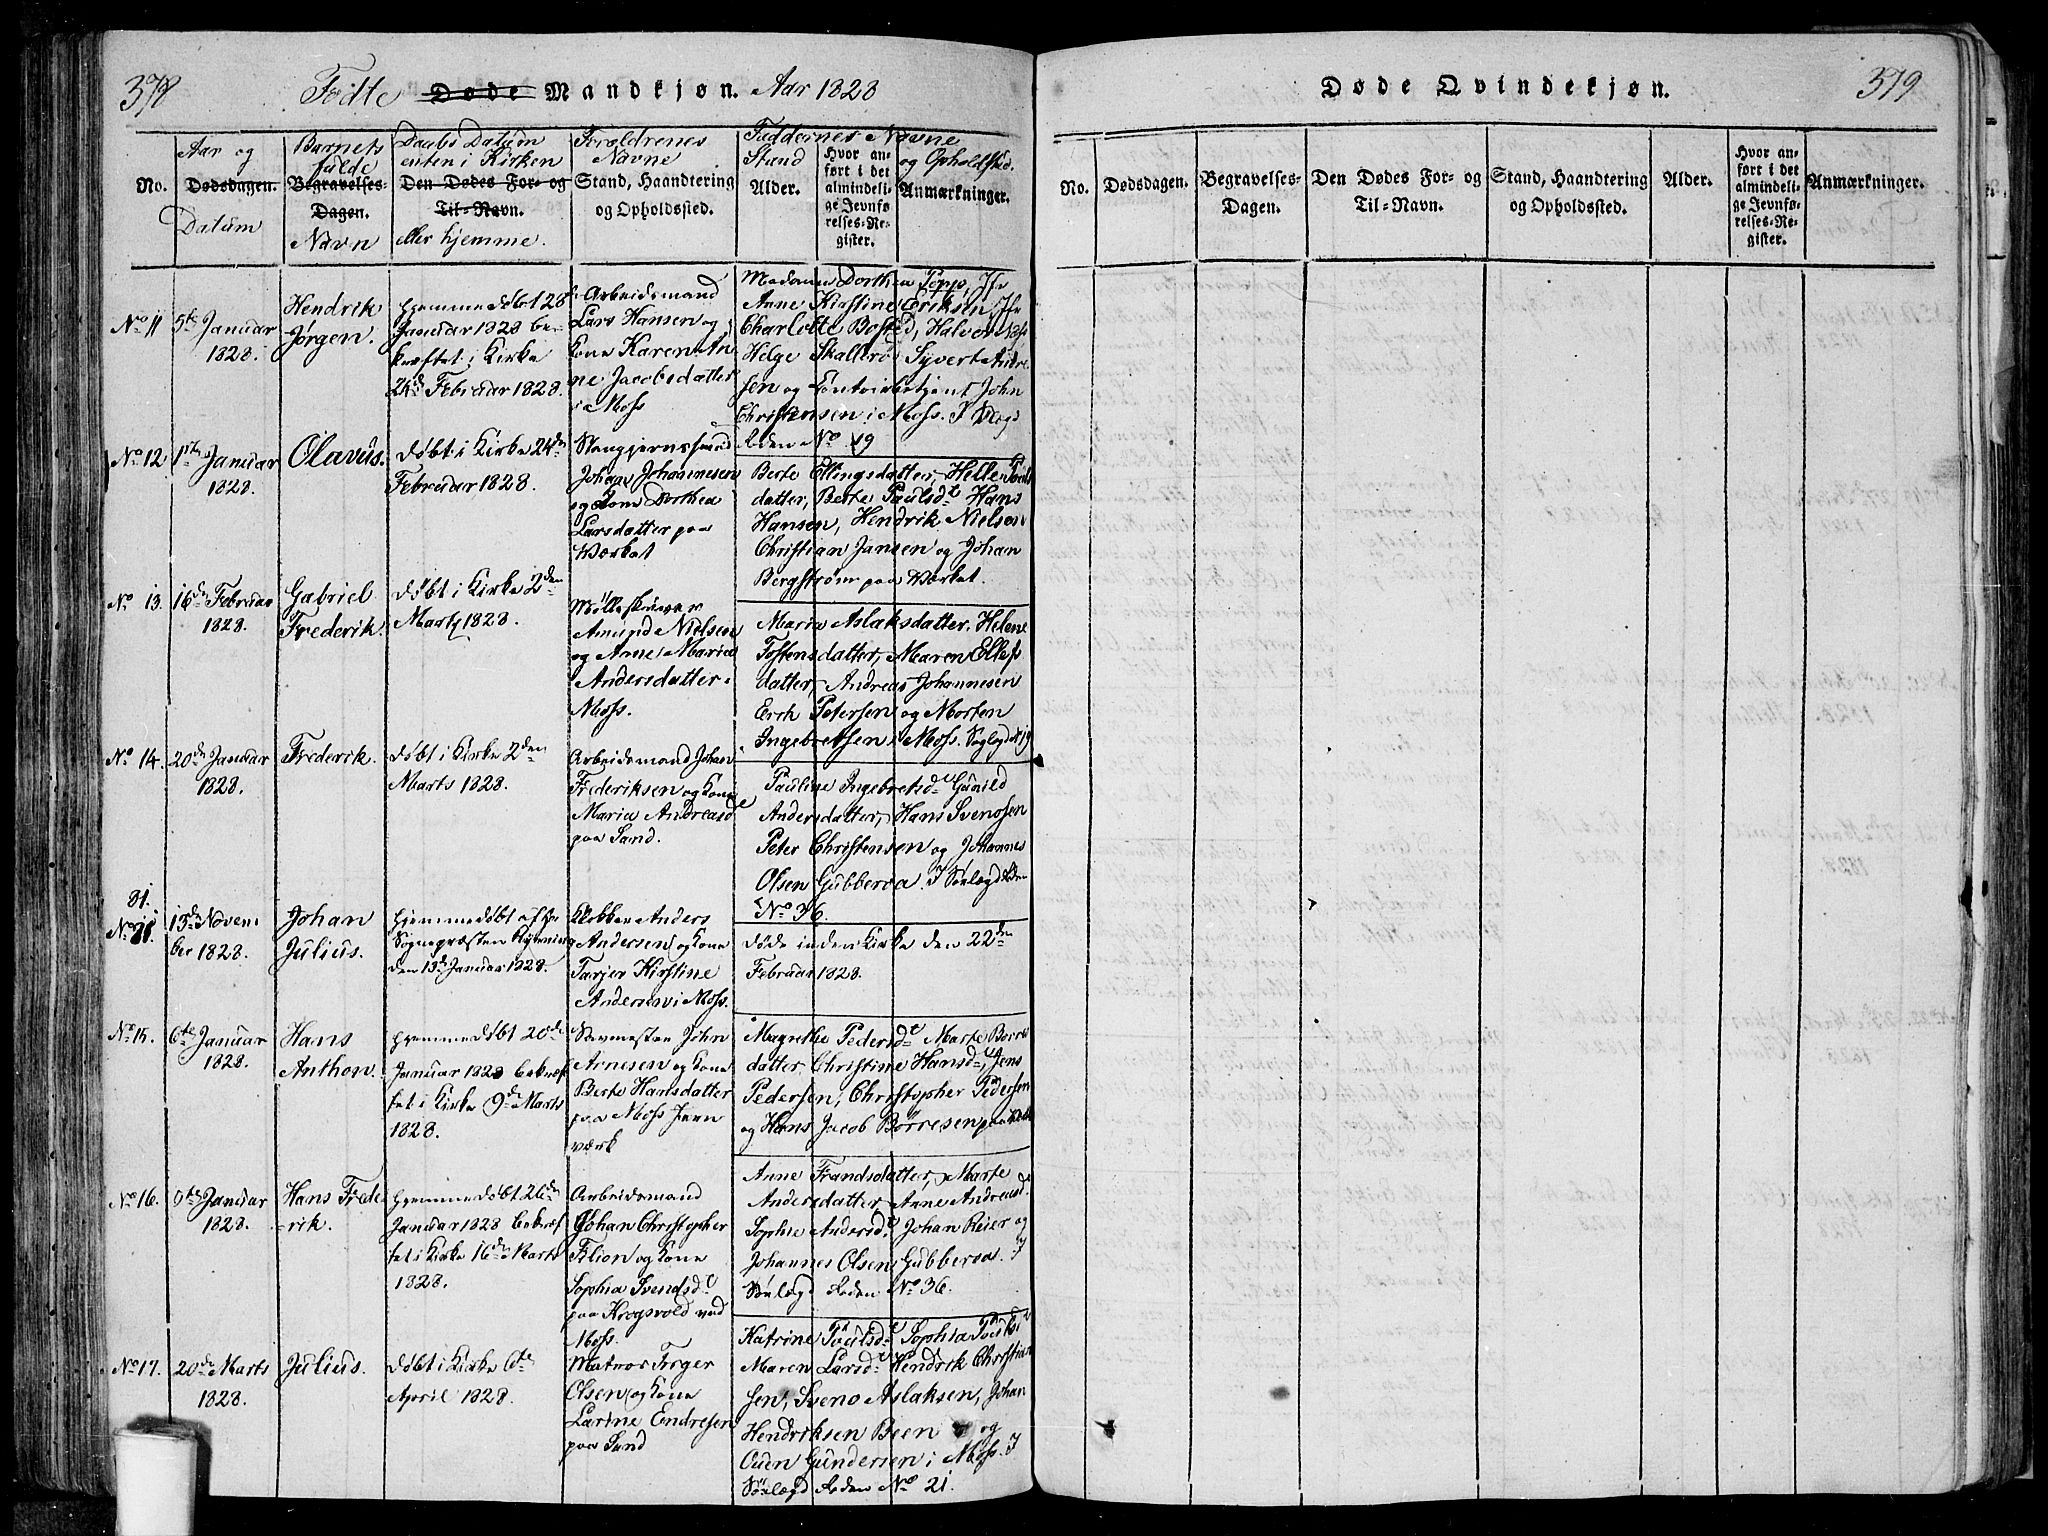 378
Fødte Døde Mandkjøn. Aar 1828
No.
Aar og
Dødsdagen.
Datum
Barnets
fulde
Begravelses-
Dagen.
Navn
Daabs Datum
enten i Kirken
Den Dødes For- og
Til-Navn.
eller hjemme.
Forældrenes
Navne
Stand, Haandtering
og Opholdssted.
Faddernes Navne
Stand
Alder.
Hvor an-
ført i det
almindeli-
ge Jevnfø-
relses-Re-
gister.
og Opholdsted.
Anmærkninger.
No 11
5te Januar
1828.
Hendrik
Jørgen.
hjemmedøbt 28
Januar 1828 be-
kræftet i Kirke
24d Februar 1828.
Arbeidsmand
Lars Hansen og
Kone Karen An
ne Jacobsdatter
i Moss
Madame Dorthea Popp, Jfr
Anne Kirstine Eriksen, Jfr
Charlotte Bosted, Halvor Næss
Helge Skallerø, Syvert Andre
sen og Contoirbetjent John
Christensen i Moss.
No 19
No 12
1ste Januar
1828.
Olavus.
døbt i Kirke 24de
Februar 1828.
Stangjernssmed
Johan Johannesen
og Kone Dorthea
Larsdatter paa
Værket
Berte Ellingsdatter, Helle
datter, Berte Paulsdt Hans
Hansen, Hendrik Nielsen
Christian Jansen og Johan
Bergstrøm paa Værket.
No 13.
16de Februar
1828.
Gabriel
Frederik.
døbt i Kirke 2den
Marty 1828.
Møllesvend
Amund Nielsen
og Anne Maria
Andersdatter i
Moss.
Maria Aslaksdatter, Helene
Tostensdatter, Maren Ellefs
datter, Andreas Johannesen
Erich Petersen og Morten
Ingebretsen i Moss.
No 14.
20de Januar
1828.
Frederik.
døbt i Kirke 2den
Marts 1828.
Arbeidsmand Johan
Frederiksen og Kone
Maria Andreasd
paa Sand.
Pauline Ingebretsdt Gunild
Andersdatter, Hans Svensen
Peter Christensen og Johannes
Olsen Gubberoa.
No 36.
81.
13de Novem
ber 1828.
Johan
Julius.
hjemmedøbt af
Sognepræsten
den 13de Januar 1828.
Klokker Anders
Andersen og Kone
Kirstine
Andersen i Moss.
døde inden Kirke den 22den
Februar 1828.
No 15.
6te Januar
1828.
Hans
Anthon.
hjemmedøbt 20de
Januar 1828 bekræf
tet i Kirke 9de Marts
1828.
John
Arnesen og Kone
Berte Hansdatter
paa Moss Jern
værk
Magrethe Pedersdt Marte
datter Christine Hansdt, Jens
Pedersen, Christopher Pedersen
og Hans Jacob Børresen paa
No 16.
9de Januar
1828.
Hans Frede
rik.
hjemmedøbt 26de
Januar 1828 bekræf
tet i Kirke 16de Marts
1828.
Arbeidsmand
Johan Christopher
Filion og Kone
Sophia Svendsdt
paa Krogsvold ved
Moss.
Anne Frandsdatter, Marte
Andersdatter, Anne Andreasdt
Sophie Andersdt Johan Reier og
Johannes Olsen Gubberoa. I
Sølægd Roden No 36.
No 17.
20de Marts
1828.
Julius.
døbt i Kirke 6te
April 1828.
Matros Torger
Olsen og Kone
Larine Endresen
paa Sand
Katrine Poulsdt Sophia
Maren Larsdt Hendrik Christian
sen, Sveno Aslaksen, Johan
Hendriksen Been og
Ouen Gundersen i Moss. I
Sølægd Roden No 21.
Døde Qvindekjøn.
379
No.
Dødsdagen.
Begravelses-
Dagen.
Den Dødes For- og
Til-Navn.
Stand, Haandtering
og Opholdssted.
Alder.
Hvor an-
ført i det
almindeli-
ge Jevnfø-
relses-Re-
gister.
Anmærkninger.